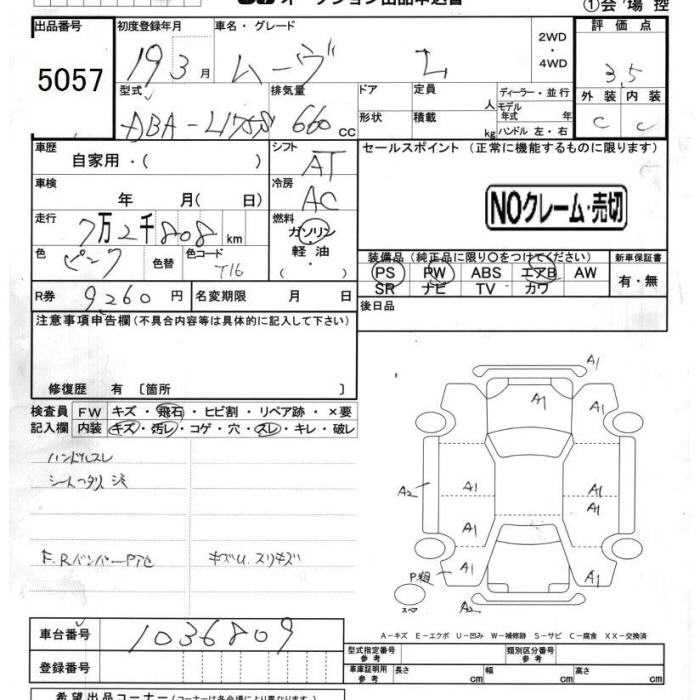 ①会場控
出品番号 初度登録年月 車名・グレード 2WD・4WD 評価点
5057 19 3月 ムーヴ L 3.5
型式 排気量 ドア 定員 人 ディーラー・並行 外装 内装
DBA-L175S 660 cc 形状 積載 kg モデル年式 年 C C
ハンドル 左・右
車歴 自家用・( ) シフト AT セールスポイント (正常に機能するものに限ります)
車検 年 月(日) 冷房 AC NOクレーム・売切
走行 7万2千808 km 燃料 ガソリン・軽油・( )
色 ピンク 色替 色コード T16
装備品 (純正品に限り○をつけてください) 新車保証書
PS PW ABS エアB AW 有・無
SR ナビ TV カワ
R券 9,260円 名変期限 月 日 後日品
注意事項申告欄 (不具合内容等は具体的に記入して下さい)
修復歴 有 〔箇所 〕
検査員 FW キズ・飛石・ヒビ割・リペア跡・×要
記入欄 内装 キズ・汚レ・コゲ・穴・スレ・キレ・破レ
ハンドルスレ
F.Rバンパー キズU.スリキズ
A1
A1
A2 A1 A1
A1
A1 A1
P組 A1 A1
スペア A2
A-キズ E-エクボ U-凹み W-補修跡 S-サビ C-腐食 XX-交換済
車台番号 1036809
登録番号
型式指定番号 参考 類別区分番号 参考
車庫証明用 参考 長さ cm 幅 cm 高さ cm
希望出品コーナー